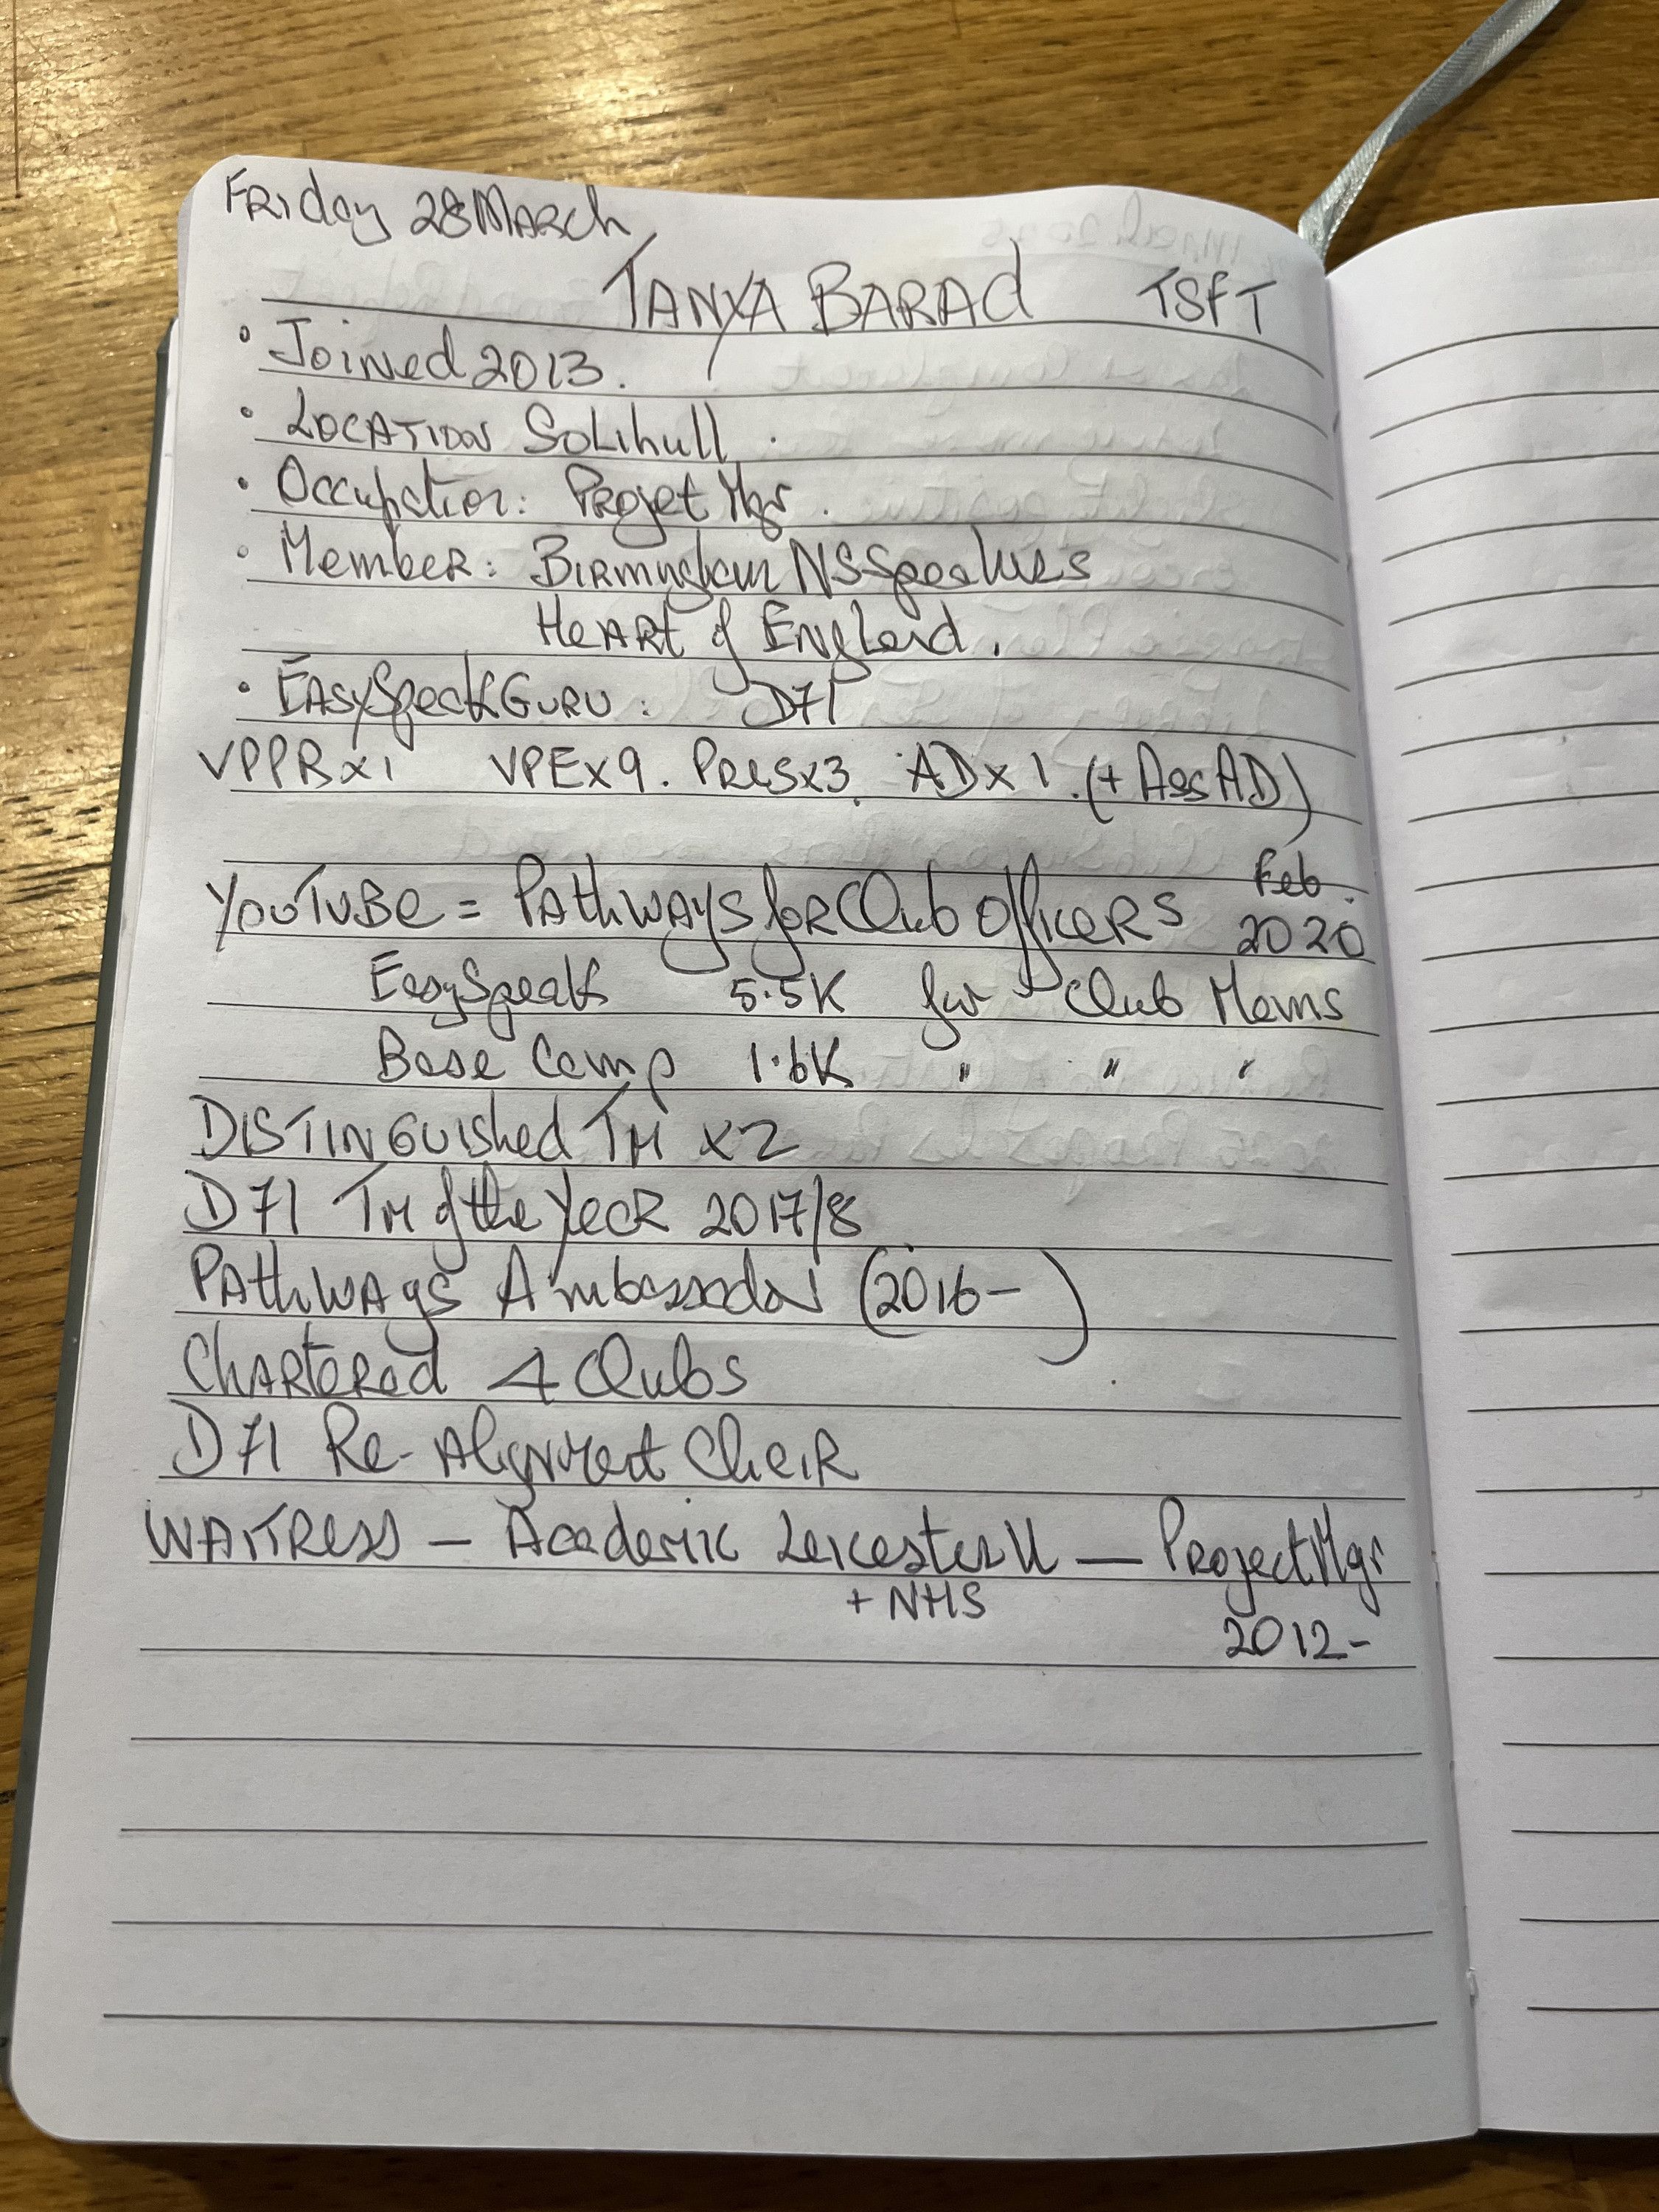 Friday 28 March
TANYA BARAD TSFT
• Joined 2013.
• LOCATION Solihull.
• Occupation: Projet Mgr.
• Member: Birmingham NSSpeakers
Heart of England.
• EasySpeak Guru: D71
VPPR x 1 VPE x 9. Pres x 3. AD x 1. (+ Ass AD)
YouTube = Pathways for Club Officers Feb.
2020
EasySpeak 5.5K for Club Mems
Base Camp 1.6K " " "
DISTINGUIShed TM x 2
D71 TM of the Year 2017/8
Pathways Ambassador (2016- )
Chartered 4 Clubs
D71 Re-Alignment Chair
WAITRESS — Academic Leicester U — Project Mgr
+ NHS
2012-